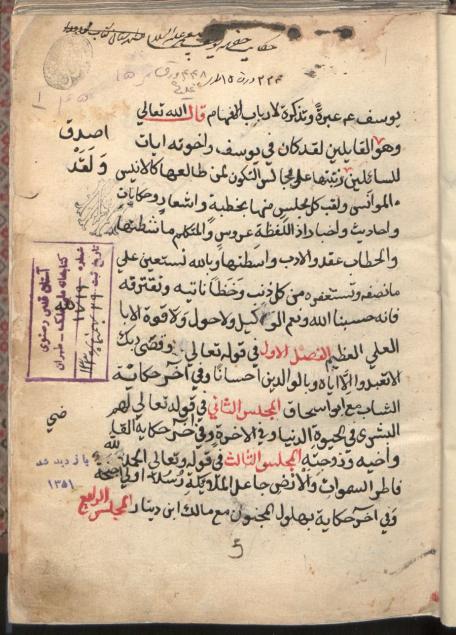 يوسف عم عبرةً وتذكرة لارباب الفهام قال الله تعالي
وهو اصدق
القايلين لقد كان في يوسف واخوته ايات
وَلَقَدْ
للسائلين رتبتها علي مجالس لتكون لمن طالعها كالانيس
الموانس ولقب كل مجلس منها بخطبة واشعار وحكايات
واحاديث
والخطاب عقد والادب واسطتها وبالله نستعين علي
ونستغفره من كل ذنب وخطأ ناتيه ونقترفه
فانه حسبنا الله ونعم الوكيل ولاحول ولا قوة الا با
العلي العظيم الفصل الاول في قوله تعالي وقضي ربك
الا تعبدوا الا اياه وبالوالدين احسانا وفي آخر حكاية
الشاب مع ابو اسحاق المجلس الثاني في قوله تعالي لهم
البشري في الحيوة الدنيا وفي الاخرة وفي آخر حكاية
ضي
واخيه وزوجته المجلس الثالث في قوله تعالي الحمد لله
فاطر السموات والارض جاعل الملايكة رسلا اولي اجنحة
وفي آخر حكاية بهلول المجنون مع مالك ابن دينار المجلس الرابع
آستان قدس رضوی
کتابخانه ملک - طهران
شماره
تاریخ ثبت
باز دید شد
۱۳۵۱
5